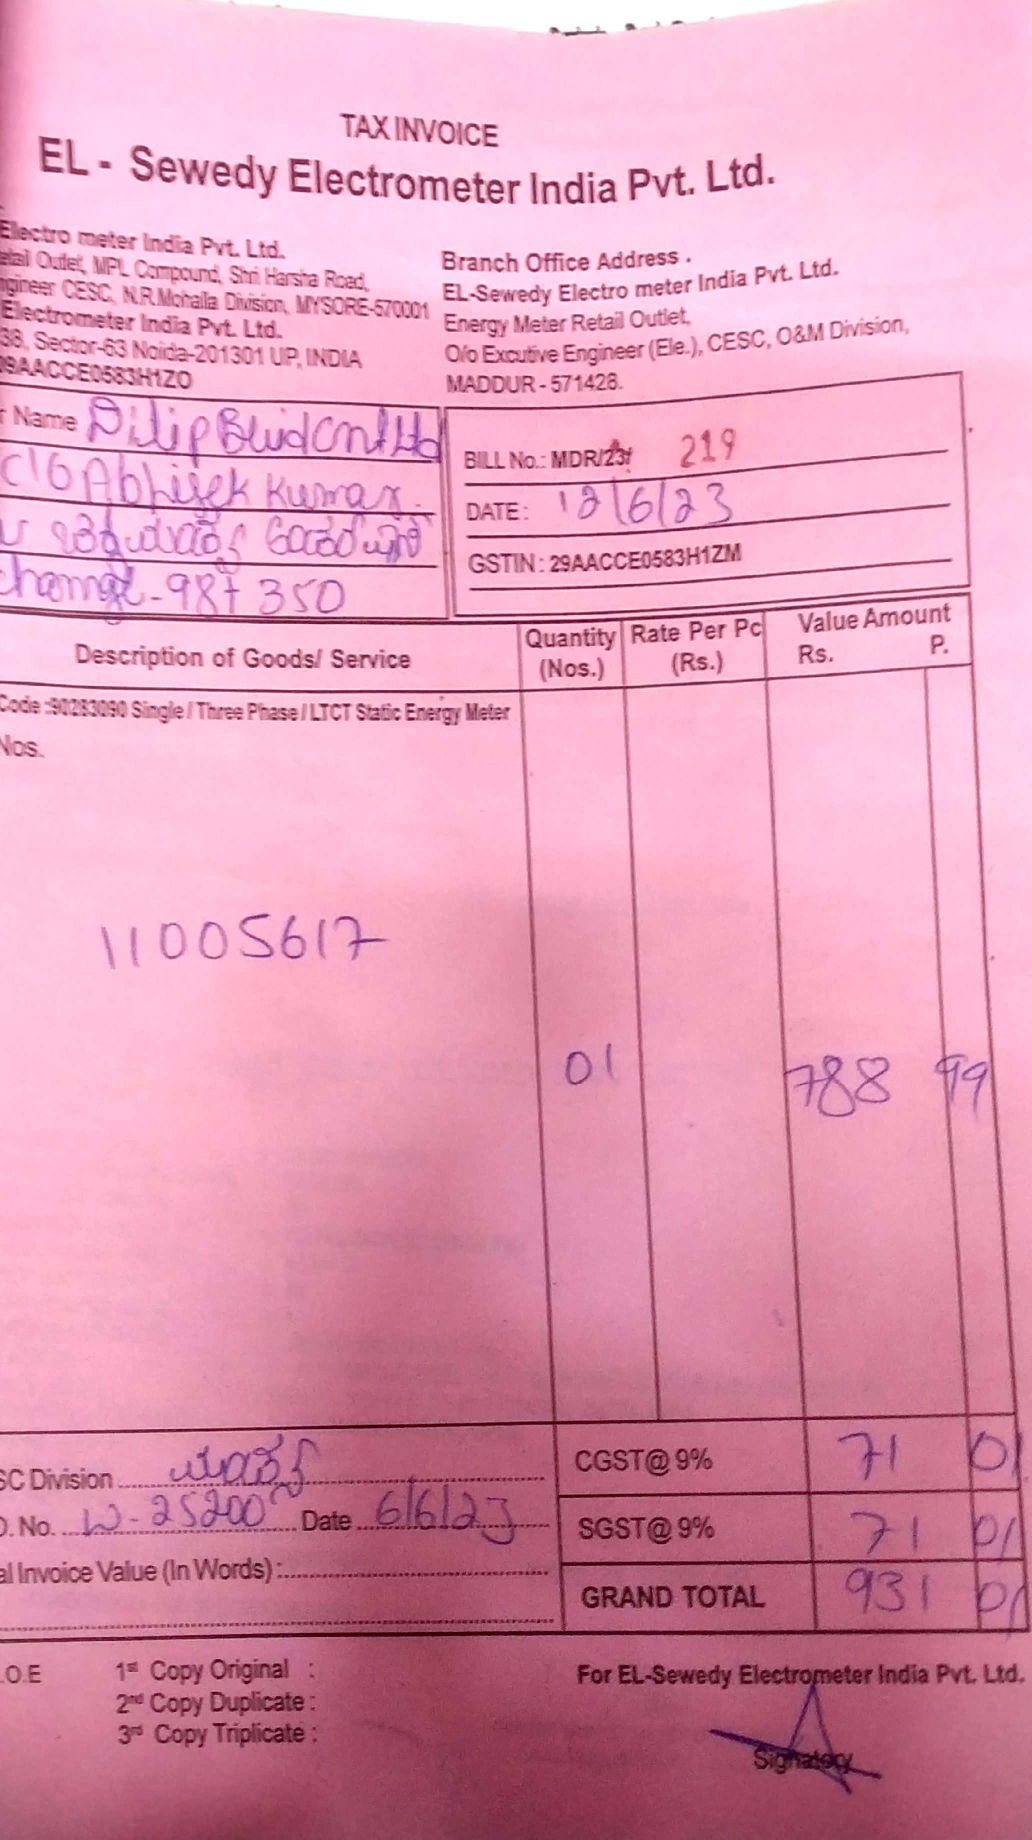 TAX INVOICE
EL - Sewedy Electrometer India Pvt. Ltd.
Electro meter India Pvt. Ltd.
etail Outlet, MPL Compound, Shri Harsha Road,
ngineer CESC, N.R.Mohalla Division, MYSORE-570001
Electrometer India Pvt. Ltd.
38, Sector-63 Noida-201301 UP, INDIA
09AACCE0583H1ZO
Branch Office Address .
EL-Sewedy Electro meter India Pvt. Ltd.
Energy Meter Retail Outlet,
O/o Excutive Engineer (Ele.), CESC, O&M Division,
MADDUR - 571428.
r Name Dilip
C/o Abhisek Kumar
987 350
BILL No.: MDR/23 219
DATE : 12/6/23
GSTIN : 29AACCE0583H1ZM
Description of Goods/ Service
Quantity (Nos.)
Rate Per Pc (Rs.)
Value Amount
Rs. P.
Code :90283090 Single / Three Phase / LTCT Static Energy Meter
Nos.
11005617
01 788 99
SC Division
CGST@ 9% 71 01
O. No. W-25200 Date 6/6/23
SGST@ 9% 71 01
al Invoice Value (In Words) :
GRAND TOTAL 931 01
.O.E
1st Copy Original :
2nd Copy Duplicate :
3rd Copy Triplicate :
For EL-Sewedy Electrometer India Pvt. Ltd.
Signatory